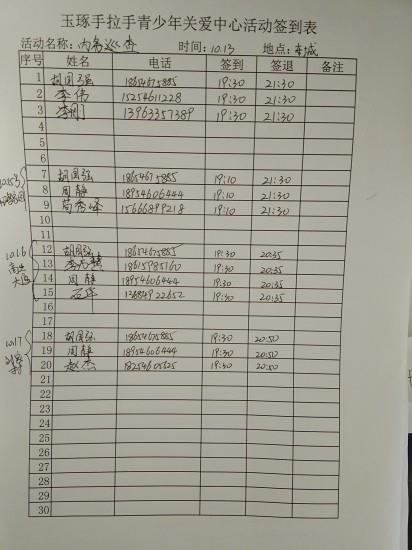 玉琢手拉手青少年关爱中心活动签到表
活动名称: 网吧巡查 时间: 10.13 地点: 东城
序号 姓名 电话 签到 签退 备注
1 胡国强 18654675885 19:30 21:30
2 李伟 15254611228 19:30 21:30
3 李刚 13963357389 19:30 21:30
4
5
6
7 胡国强 18654675885 19:10 21:30
8 周静 18954606444 19:10 21:30
9 苟秀峰 15666899218 19:10 21:30
10
11
10.16
12 胡国强 18654675885 19:30 20:35
13 18615985160 19:30 20:35
14 周静 18954606444 19:30 20:35
15 19:30 20:35
16
17
10.17
18 胡国强 18654675885 19:30 20:50
19 周静 18954606444 19:30 20:50
20 赵杰 18254605625 19:30 20:50
21
22
23
24
25
26
27
28
29
30